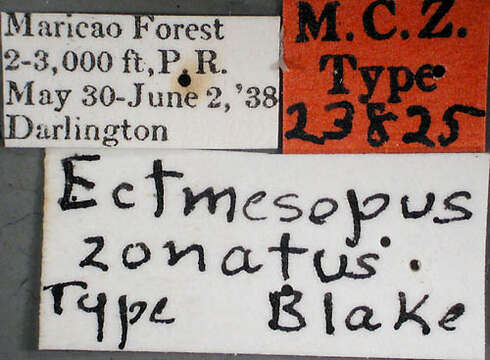 Maricao Forest
2-3,000 ft, P.R.
May 30-June 2, '38
Darlington
M.C.Z.
Type
23825
Ectmesopus
zonatus
Type Blake